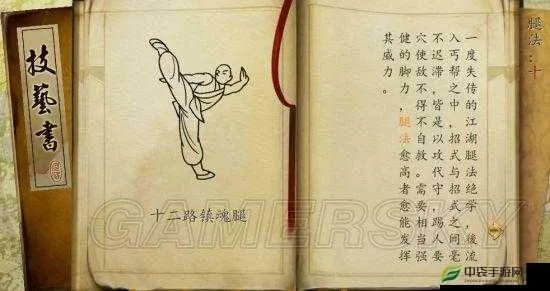 技藝書
十二路镇魂腿
腿法：十
一度失传的江湖腿法绝学，後流
入丐帮之中，招式与招式之间毫
不迟滞，皆是以攻代守，踢人要
穴使敌不得不自救。需要相当强
健的脚力，腿法愈高者愈能发挥
其威力。
GAMERSKY
中袋手游网